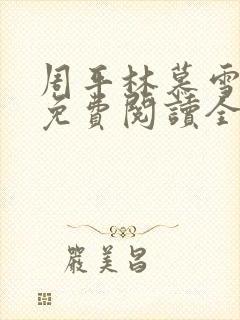 周平林慕雪
免費閱讀全
嚴美昌